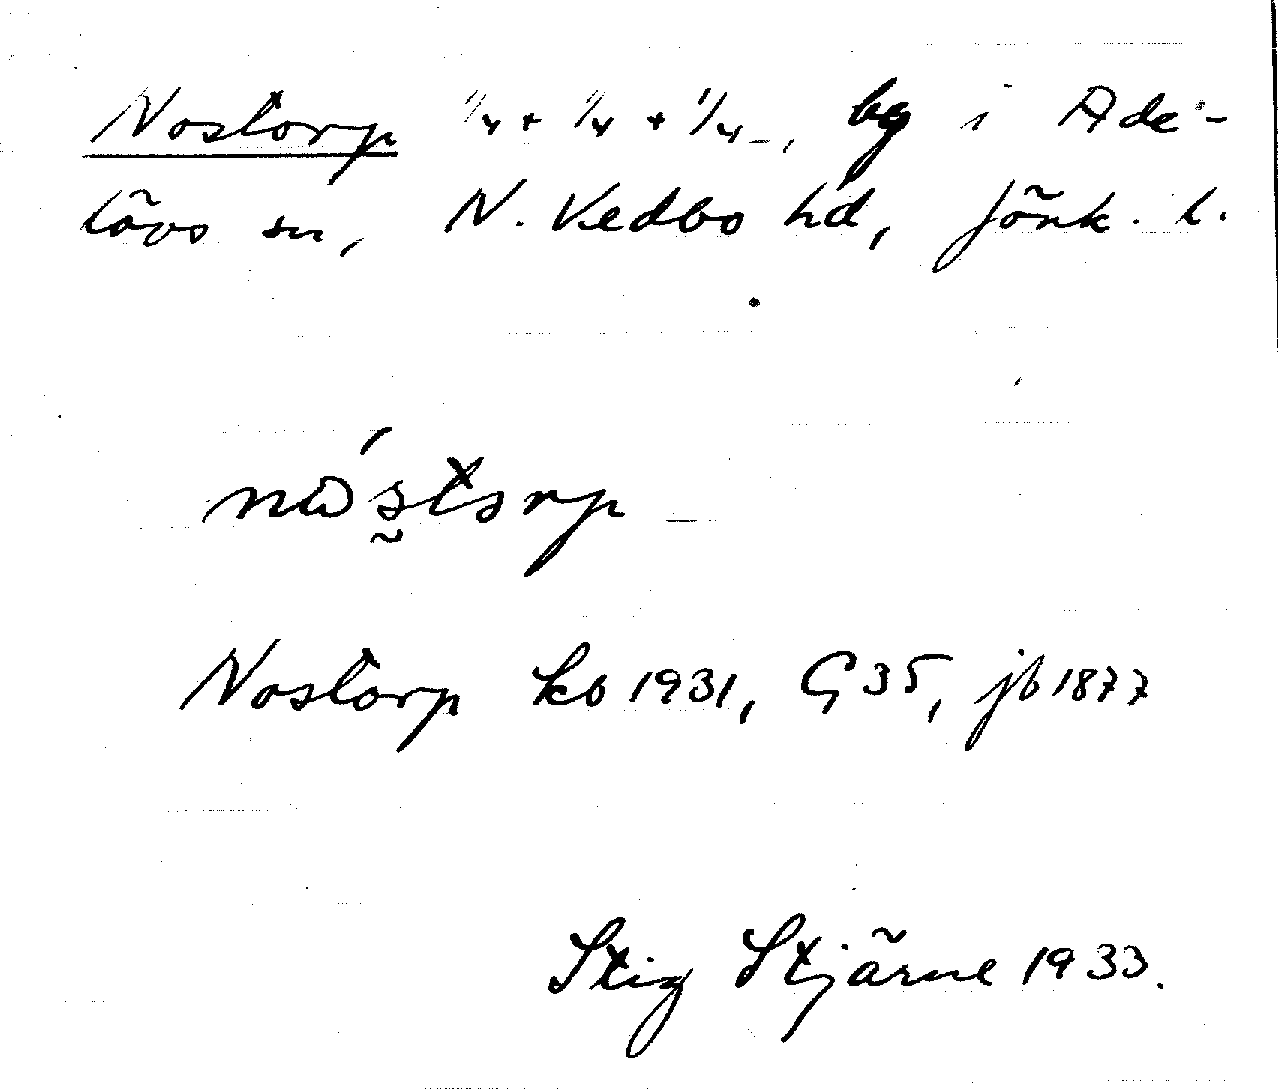 Nostorp ¼ + ¼ + ¼, by i Ade-
lövs sn, N. Vedbo hd, Jönk. l.
nɷ́s̰torp
Nostorp kb 1931, G 35, jb 1877
Stig Stjärne 1933.